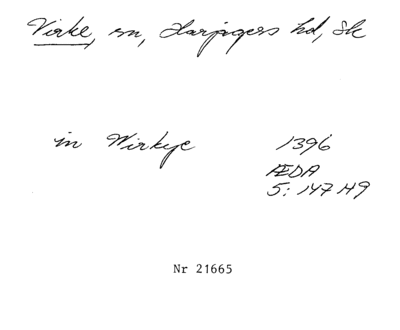 Virke, sn, Harjagers hd, Sk
in Wirkye 1396
ÆDA
5: 147 H9
Nr 21665